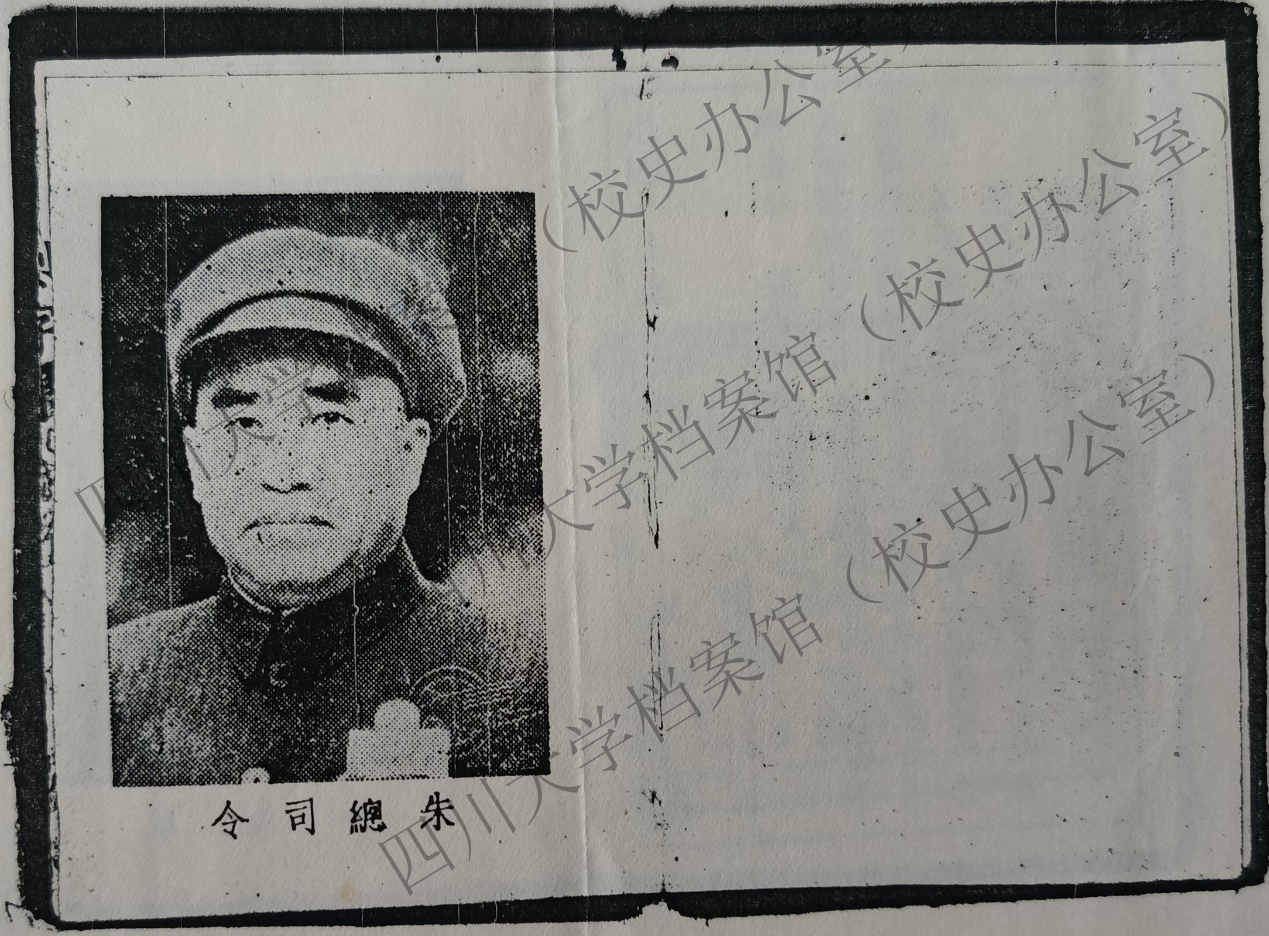 四川大学（校史办公室）
川大学档案馆（校史办公室）
四川大学档案馆（校史办公室）
朱總司令